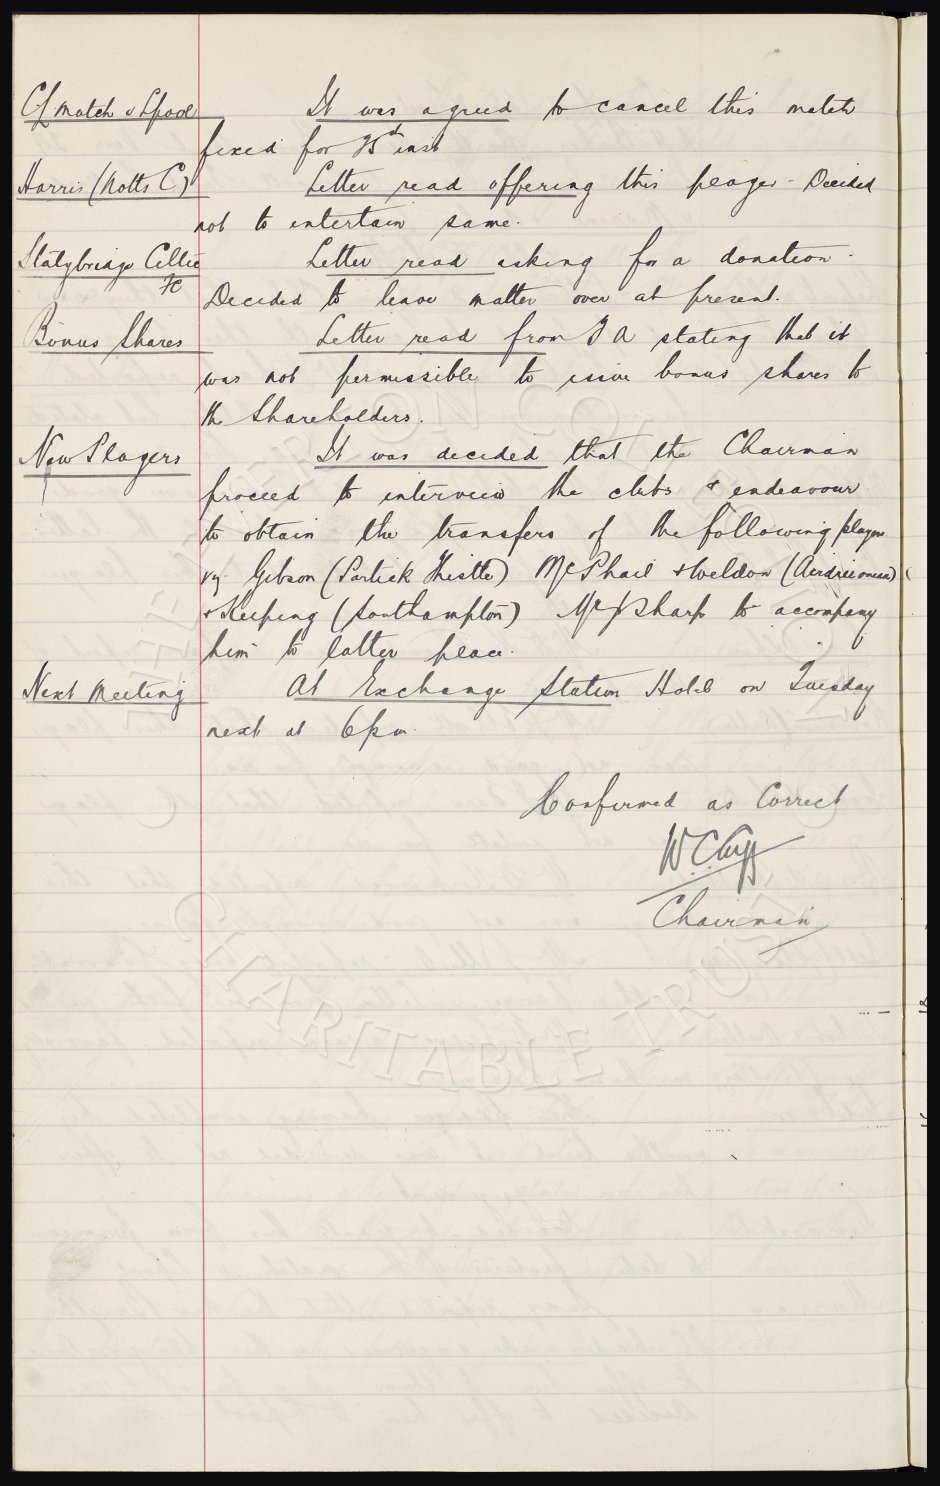 CL match v Lpool It was agreed to cancel this match
fixed for 25th inst
Harris (Notts C) Letter read offering this player - Decided
not to entertain same.
Stalybridge Celtic Letter read asking for a donation.
FC Decided to leave matter over at present.
Bonus Shares Letter read from F A stating that it
was not permissible to issue bonus shares to
the Shareholders.
New Players It was decided that the Chairman
proceed to interview the clubs & endeavour
to obtain the transfers of the following players
viz. Gibson (Partick Thistle) McPhail & Weldon (Airdrieonians)
& Keeping (Southampton) Mr Sharp to accompany
him to latter place.
Next Meeting At Exchange Station Hotel on Tuesday
next at 6pm.
Confirmed as Correct
W.C. Cuff
Chairman
EVERTON COLLECTION
CHARITABLE TRUST